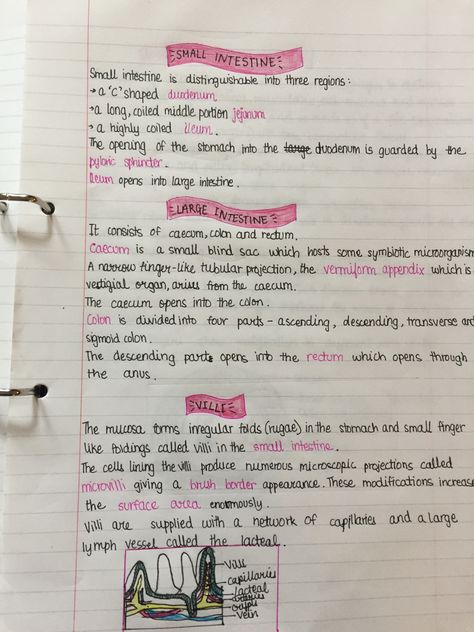 SMALL INTESTINE
Small intestine is distinguishable into three regions:
→ a 'C' shaped duodenum
→ a long, coiled middle portion jejunum
→ a highly coiled ileum.
The opening of the stomach into the large duodenum is guarded by the
pyloric sphincter.
Ileum opens into large intestine.
LARGE INTESTINE
It consists of caecum, colon and rectum.
Caecum is a small blind sac which hosts some symbiotic microorganism
A narrow finger-like tubular projection, the vermiform appendix which is
vestigial organ, arises from the caecum.
The caecum opens into the colon.
Colon is divided into four parts - ascending, descending, transverse and
sigmoid colon.
The descending parts opens into the rectum which opens through
the anus.
VILLI
The mucosa forms irregular folds (rugae) in the stomach and small finger
like foldings called villi in the small intestine.
The cells lining the villi produce numerous microscopic projections called
microvilli giving a brush border appearance. These modifications increase
the surface area enormously.
Villi are supplied with a network of capillaries and a large
lymph vessel called the lacteal.
Villi
capillaries
lacteal
crypts
vein